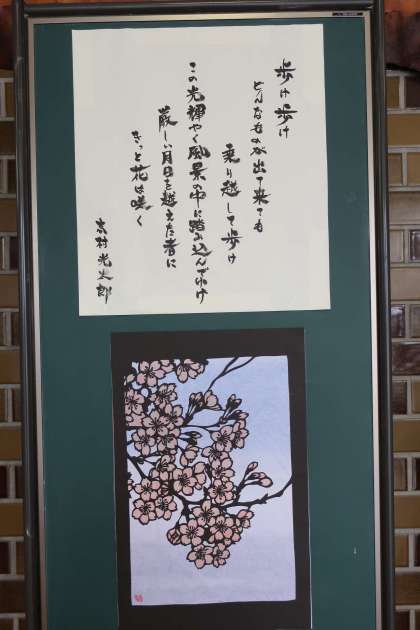 歩け歩け
どんなものが出て来ても
乗り越して歩け
この光輝やく風景の中に踏み込んでゆけ
厳しい月日を越えた者に
きっと花は咲く
高村光太郎